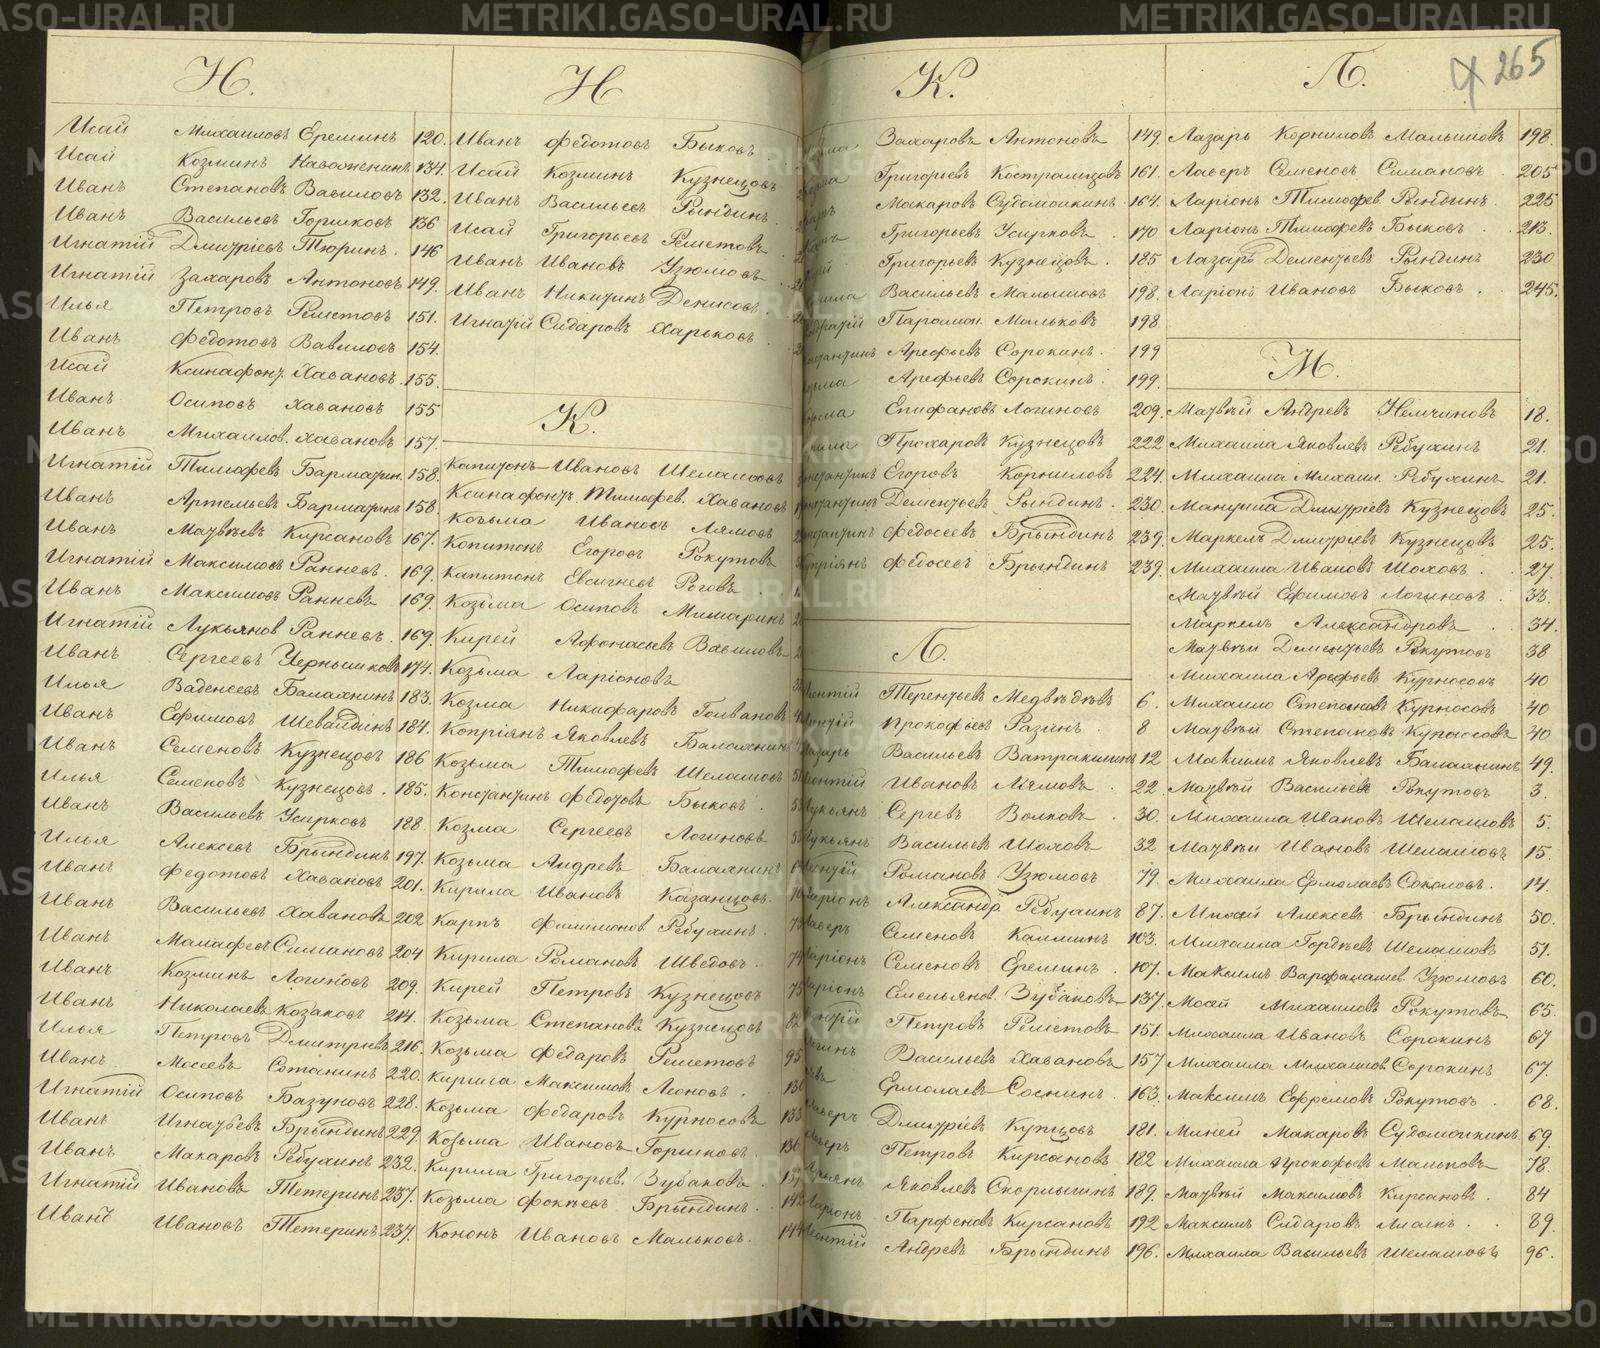 И.
Исай Михаиловъ Ереминъ 120.
Исай Козминъ Наваженинъ 134.
Иванъ Степановъ Вавиловъ 132.
Иванъ Васильевъ Горшковъ 136
Игнатій Дмитріевъ Тюринъ. 146
Игнатій Захаровъ Антоновъ 149.
Илья Петровъ Решетовъ 151.
Иванъ Федотовъ Вавиловъ 154.
Исай Ксинафонт. Хавановъ. 155.
Иванъ Осиповъ Хавановъ 155
Иванъ Михаилов. Хавановъ 157.
Игнатій Тимофеев Барматин. 158.
Иванъ Артемьевъ Барматинъ 158.
Иванъ Матвѣевъ Кирсановъ 167.
Игнатій Максимовъ Ранневъ. 169.
Иванъ Максимовъ Ранневъ 169.
Игнатій Лукьянов Ранневъ. 169.
Иванъ Сергеевъ Чернышковъ 174.
Илья Ваденеевъ Балахнинъ 183.
Иванъ Ефимовъ Шевайдинъ 184.
Иванъ Семеновъ Кузнецовъ 186
Илья Семеновъ Кузнецовъ. 185.
Иванъ Васильевъ Усирковъ 188.
Илья Алексевъ Брындинъ 197.
Иванъ Федотовъ Хавановъ 201.
Иванъ Васильевъ Хавановъ 202
Иванъ Малафеевъ Симановъ 204
Иванъ Козминъ Логиновъ 209.
Иванъ Николаевъ Козаковъ 214.
Илья Петровъ Дмитриевъ 216.
Иванъ Мосеевъ Сотанинъ 220.
Игнатій Осиповъ Базуновъ 228.
Иванъ Игнатьевъ Брындинъ 229.
Иванъ Макаровъ Ребухинъ 232.
Игнатій Ивановъ Тетеринъ 237.
Иванъ Ивановъ Тетеринъ 237.
И
Иванъ Федотовъ Быковъ
Исай Козминъ Кузнецовъ
Иванъ Васильевъ Рындинъ
Исай Григорьевъ Решетовъ
Иванъ Ивановъ Узюмовъ
Иванъ Никитинъ Денисовъ.
Игнатій Сидаровъ Харьковъ
К.
Капитонъ Ивановъ Шелашовъ
Ксинафонтъ Тимофев. Хавановъ
Козьма Ивановъ Лямовъ
Копитонъ Егоровъ Рокутовъ
Капитонъ Евсигневъ Роговъ
Козьма Осиповъ Мишаринъ
Кирей Афонасьевъ Вавиловъ
Козьма Ларіоновъ
Козма Никифаровъ Голвановъ
Копріянъ Яковлевъ Балахнинъ
Козьма Тимофевъ Шелашовъ
Константинъ Федотовъ Быковъ.
Козма Сергеевъ Логиновъ
Козьма Андревъ Балахнинъ
Кирила Ивановъ Казанцовъ.
Карпъ Филимонов Ребухинъ.
Кирила Романовъ Шведовъ.
Кирей Петровъ Кузнецовъ
Козьма Степановъ Кузнецовъ
Козьма Федаровъ Решетовъ 95
Кирила Максимовъ Леоновъ.
Козьма Федаровъ Курносовъ 133
Козьма Ивановъ Горшковъ. 136
Кирила Григорьев. Зубаковъ.
Козьма Фокѣевъ Брындинъ. 142
Кононъ Ивановъ Мальковъ. 144
К.
Захаровъ Антоновъ 149.
Григорьевъ Костромицовъ 161.
Макаровъ Судомойкинъ 164.
Григорьевъ Усирковъ. 170
Григорьевъ Кузнецовъ. 185
Васильевъ Малышовъ 198.
Парамон. Мальковъ 198.
Арефьевъ Сорокинъ. 199
Арефьевъ Сорокинъ. 199.
Епифановъ Логиновъ 209.
Прохаровъ Кузнецовъ 222
Егоровъ Корниловъ 224.
Дементьевъ Рындинъ. 230.
Федосеевъ Брындинъ 239.
Федосеевъ Брындинъ 239.
Л.
Терентьевъ Медвѣдевъ 6.
Прокофьевъ Разинъ. 8
Васильевъ Ватракшинъ 12
Ивановъ Лямовъ. 22.
Лукьянъ Сергевъ Волковъ. 30.
Лукьянъ Васильевъ Шоховъ 32
Романовъ Узюмовъ 79.
Александр. Ребухинъ 87.
Семеновъ Калминъ 103.
Семеновъ Ереминъ. 107.
Емельянов. Зубаковъ 137.
Петровъ Решетовъ 151.
Васильевъ Хавановъ 157
Ермолаевъ Соснинъ. 163.
Дмитріевъ Купцовъ 181.
Петровъ Кирсановъ 182
Яковлевъ Скорлыгинъ 189.
Парфеновъ Кирсановъ 192
Андревъ Брындинъ 196.
Л. 265
Лазарь Корниловъ Малышовъ 198.
Лаверъ Семеновъ Симановъ. 205
Ларіонъ Тимофев. Рындинъ. 225
Ларіонъ Тимофевъ Быковъ. 213.
Лазарь Дементьевъ Рындинъ 230
Ларіонъ Ивановъ Быковъ. 245.
М.
Матвѣй Андревъ Немчиновъ 18.
Михаила Яковлевъ Ребухинъ 21.
Михаила Михаил. Ребухинъ 21.
Мануила Дмитріевъ Кузнецовъ 25.
Маркелъ Дмитріевъ Кузнецовъ 25.
Михаила Ивановъ Шоховъ. 27.
Матвѣй Ефимовъ Логиновъ. 33.
Маркелъ Александровъ 34.
Матвѣй Дементьевъ Рокутовъ 38
Михаила Арефьевъ Курносовъ 40
Михаило Степановъ Курносовъ 40
Матвѣй Степановъ Курносовъ 40
Максимъ Яковлевъ Балахнинъ 49.
Матвѣй Васильевъ Рокутовъ 3.
Михаила Ивановъ Шелашовъ 5.
Матвѣй Ивановъ Шелашовъ 15.
Михаила Ермолаевъ Соколовъ. 14.
Михей Алексевъ Брындинъ 50.
Михаила Гордѣевъ Шелашовъ 51.
Максимъ Варфаламев. Узюмовъ 60.
Мосей Михаиловъ Рокутовъ 65.
Михаила Ивановъ Сорокинъ 67
Михаила Михаиловъ Сорокинъ 67.
Максимъ Ефремовъ Рокутовъ. 68.
Миней Макаровъ Судомойкинъ 69.
Михаила Прокофьевъ Мальковъ 78.
Матвѣй Максимовъ Кирсановъ. 84
Максимъ Сидаровъ 89.
Михаила Васильевъ Шелашовъ 96.
METRIKI.GASO-URAL.RU